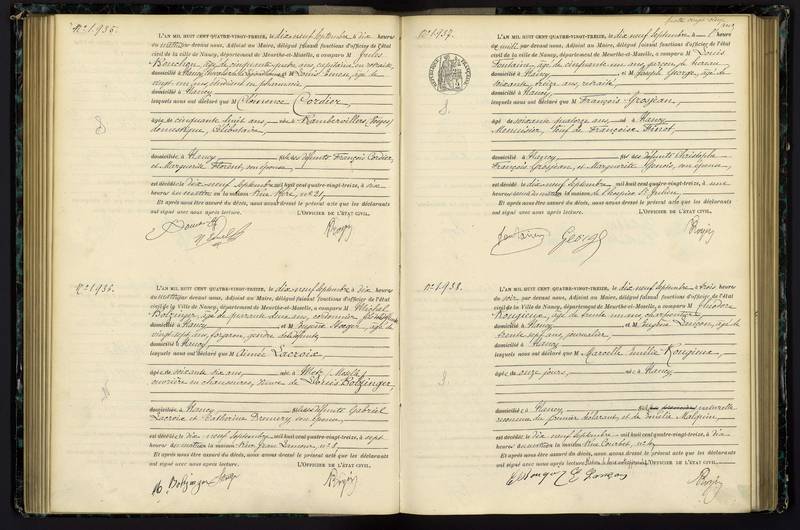 N° 1935.
L'AN MIL HUIT CENT QUATRE-VINGT-TREIZE, le dix neuf Septembre à dix heures
du matin par devant nous, Adjoint au Maire, délégué faisant fonctions d'officier de l'état
civil de la ville de Nancy, département de Meurthe-et-Moselle, a comparu M Jules
âgé de cinquante quatre ans, capitaine en retraite
domicilié à Nancy et M Louis âgé de
vingt un ans, étudiant en pharmacie,
domicilié à Nancy
lesquels nous ont déclaré que M Clémence Cordier,
âgée de cinquante huit ans, née à Rambervillers (Vosges)
domestique, célibataire,
domiciliée à Nancy fille des défunts François Cordier,
et Marguerite Florent, son épouse
est décédée le dix neuf Septembre mil huit cent quatre-vingt-treize, à dix
heures du matin en la maison n° 21,
Et après nous être assuré du décès, nous avons dressé le présent acte que les déclarants
ont signé avec nous après lecture. L'OFFICIER DE L'ÉTAT CIVIL.
N° 1936.
L'AN MIL HUIT CENT QUATRE-VINGT-TREIZE, le dix neuf Septembre à dix heures
du matin par devant nous, Adjoint au Maire, délégué faisant fonctions d'officier de l'état
civil de la Ville de Nancy, département de Meurthe-et-Moselle, a comparu M Michel
Bolzinger, âgé de quarante deux ans, cordonnier
domicilié à Nancy et M Eugène âgé de
vingt sept ans, forgeron, gendre
domicilié à Nancy
lesquels nous ont déclaré que M Aimée Lacroix,
âgée de soixante dix ans, née à Metz (Moselle)
ouvrière en chaussures, Veuve de Louis Bolzinger,
domiciliée à Nancy fille des défunts Gabriel
Lacroix et Catherine son épouse
est décédée le dix neuf Septembre mil huit cent quatre-vingt-treize, à sept
heures du matin en la maison Rue Jean Lamour, n° 8,
Et après nous être assuré du décès, nous avons dressé le présent acte que les déclarants
ont signé avec nous après lecture. L'OFFICIER DE L'ÉTAT CIVIL.
M. Bolzinger
N° 1937.
L'AN MIL HUIT CENT QUATRE-VINGT-TREIZE, le dix neuf Septembre à heure
par devant nous, Adjoint au Maire, délégué faisant fonctions d'officier de l'état
civil de la ville de Nancy, département de Meurthe-et-Moselle, a comparu M Louis
Fontaine, âgé de cinquante un ans, garçon de bureau
domicilié à Nancy et M Joseph George, âgé de
soixante treize ans, retraité,
domicilié à Nancy
lesquels nous ont déclaré que M François Grosjean,
âgé de soixante quatorze ans, né à Nancy
Menuisier, Veuf de Françoise
domicilié à Nancy fils des défunts Christophe
François Grosjean, et Marguerite son épouse
est décédé le dix neuf Septembre mil huit cent quatre-vingt-treize, à une
heure du matin en la maison l'hospice St Julien,
Et après nous être assuré du décès, nous avons dressé le présent acte que les déclarants
ont signé avec nous après lecture. L'OFFICIER DE L'ÉTAT CIVIL.
Fontaine George
N° 1938.
L'AN MIL HUIT CENT QUATRE-VINGT-TREIZE, le dix neuf Septembre à trois heures
du soir par devant nous, Adjoint au Maire, délégué faisant fonctions d'officier de l'état
civil de la ville de Nancy, département de Meurthe-et-Moselle, a comparu M Théodore
Rougieux, âgé de trente un ans, charpentier
domicilié à Nancy et M Eugène Lançon, âgé de
trente sept ans, journalier,
domicilié à Nancy
lesquels nous ont déclaré que M Marcelle Emilie Rougieux,
âgée de onze jours, née à Nancy,
domiciliée à Nancy naturelle
reconnue du premier déclarant, et de Emélie
est décédée le dix neuf Septembre mil huit cent quatre-vingt-treize, à dix
heures du matin en la maison Rue Courbet, n° 4,
Et après nous être assuré du décès, nous avons dressé le présent acte que les déclarants
ont signé avec nous après lecture. L'OFFICIER DE L'ÉTAT CIVIL.
E Lançon